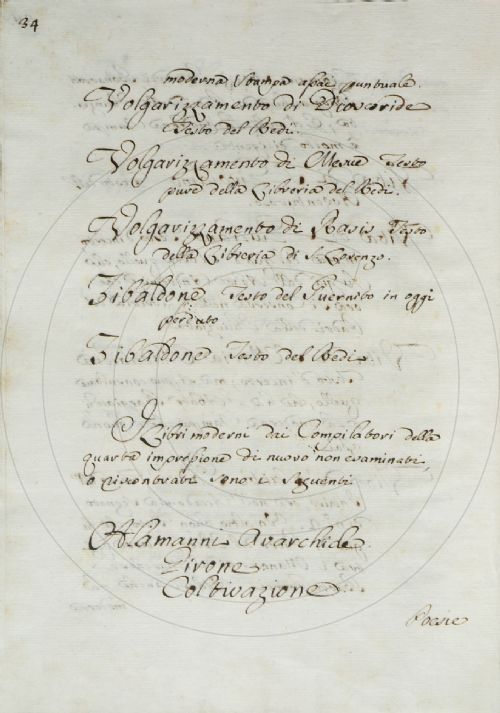 34
moderna Stampa assai puntuale.
Volgarizzamento di Dioscoride
Testo del Redi.
Volgarizzamento di Mesue Testo
pure della Libreria del Redi.
Volgarizzamento di Rasis Testo
della Libreria di S. Lorenzo.
Zibaldone Testo del Guernito in oggi
perduto
Zibaldone Testo del Redi.
I Libri moderni dai Compilatori della
quarta impressione di nuovo non esaminati,
o riscontrati sono i Seguenti
Alamanni Avarchide
Girone
Coltivazione
Poesie